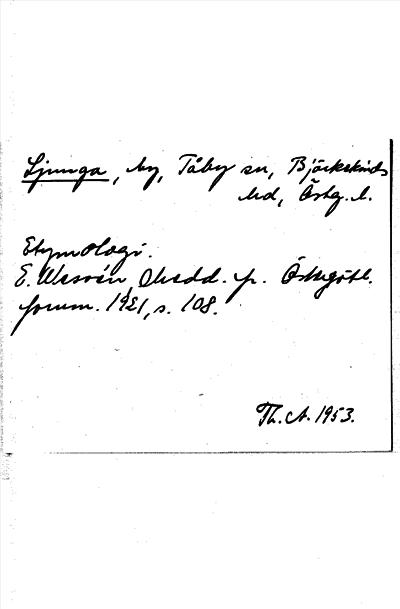 Ljunga, by, Tåby sn, Björkekinds
hd, Östg. l.
Etymologi.
E. Wessén, Medd. fr. Östergötl.
fornm. 1921, s. 108.
Th. A. 1953.